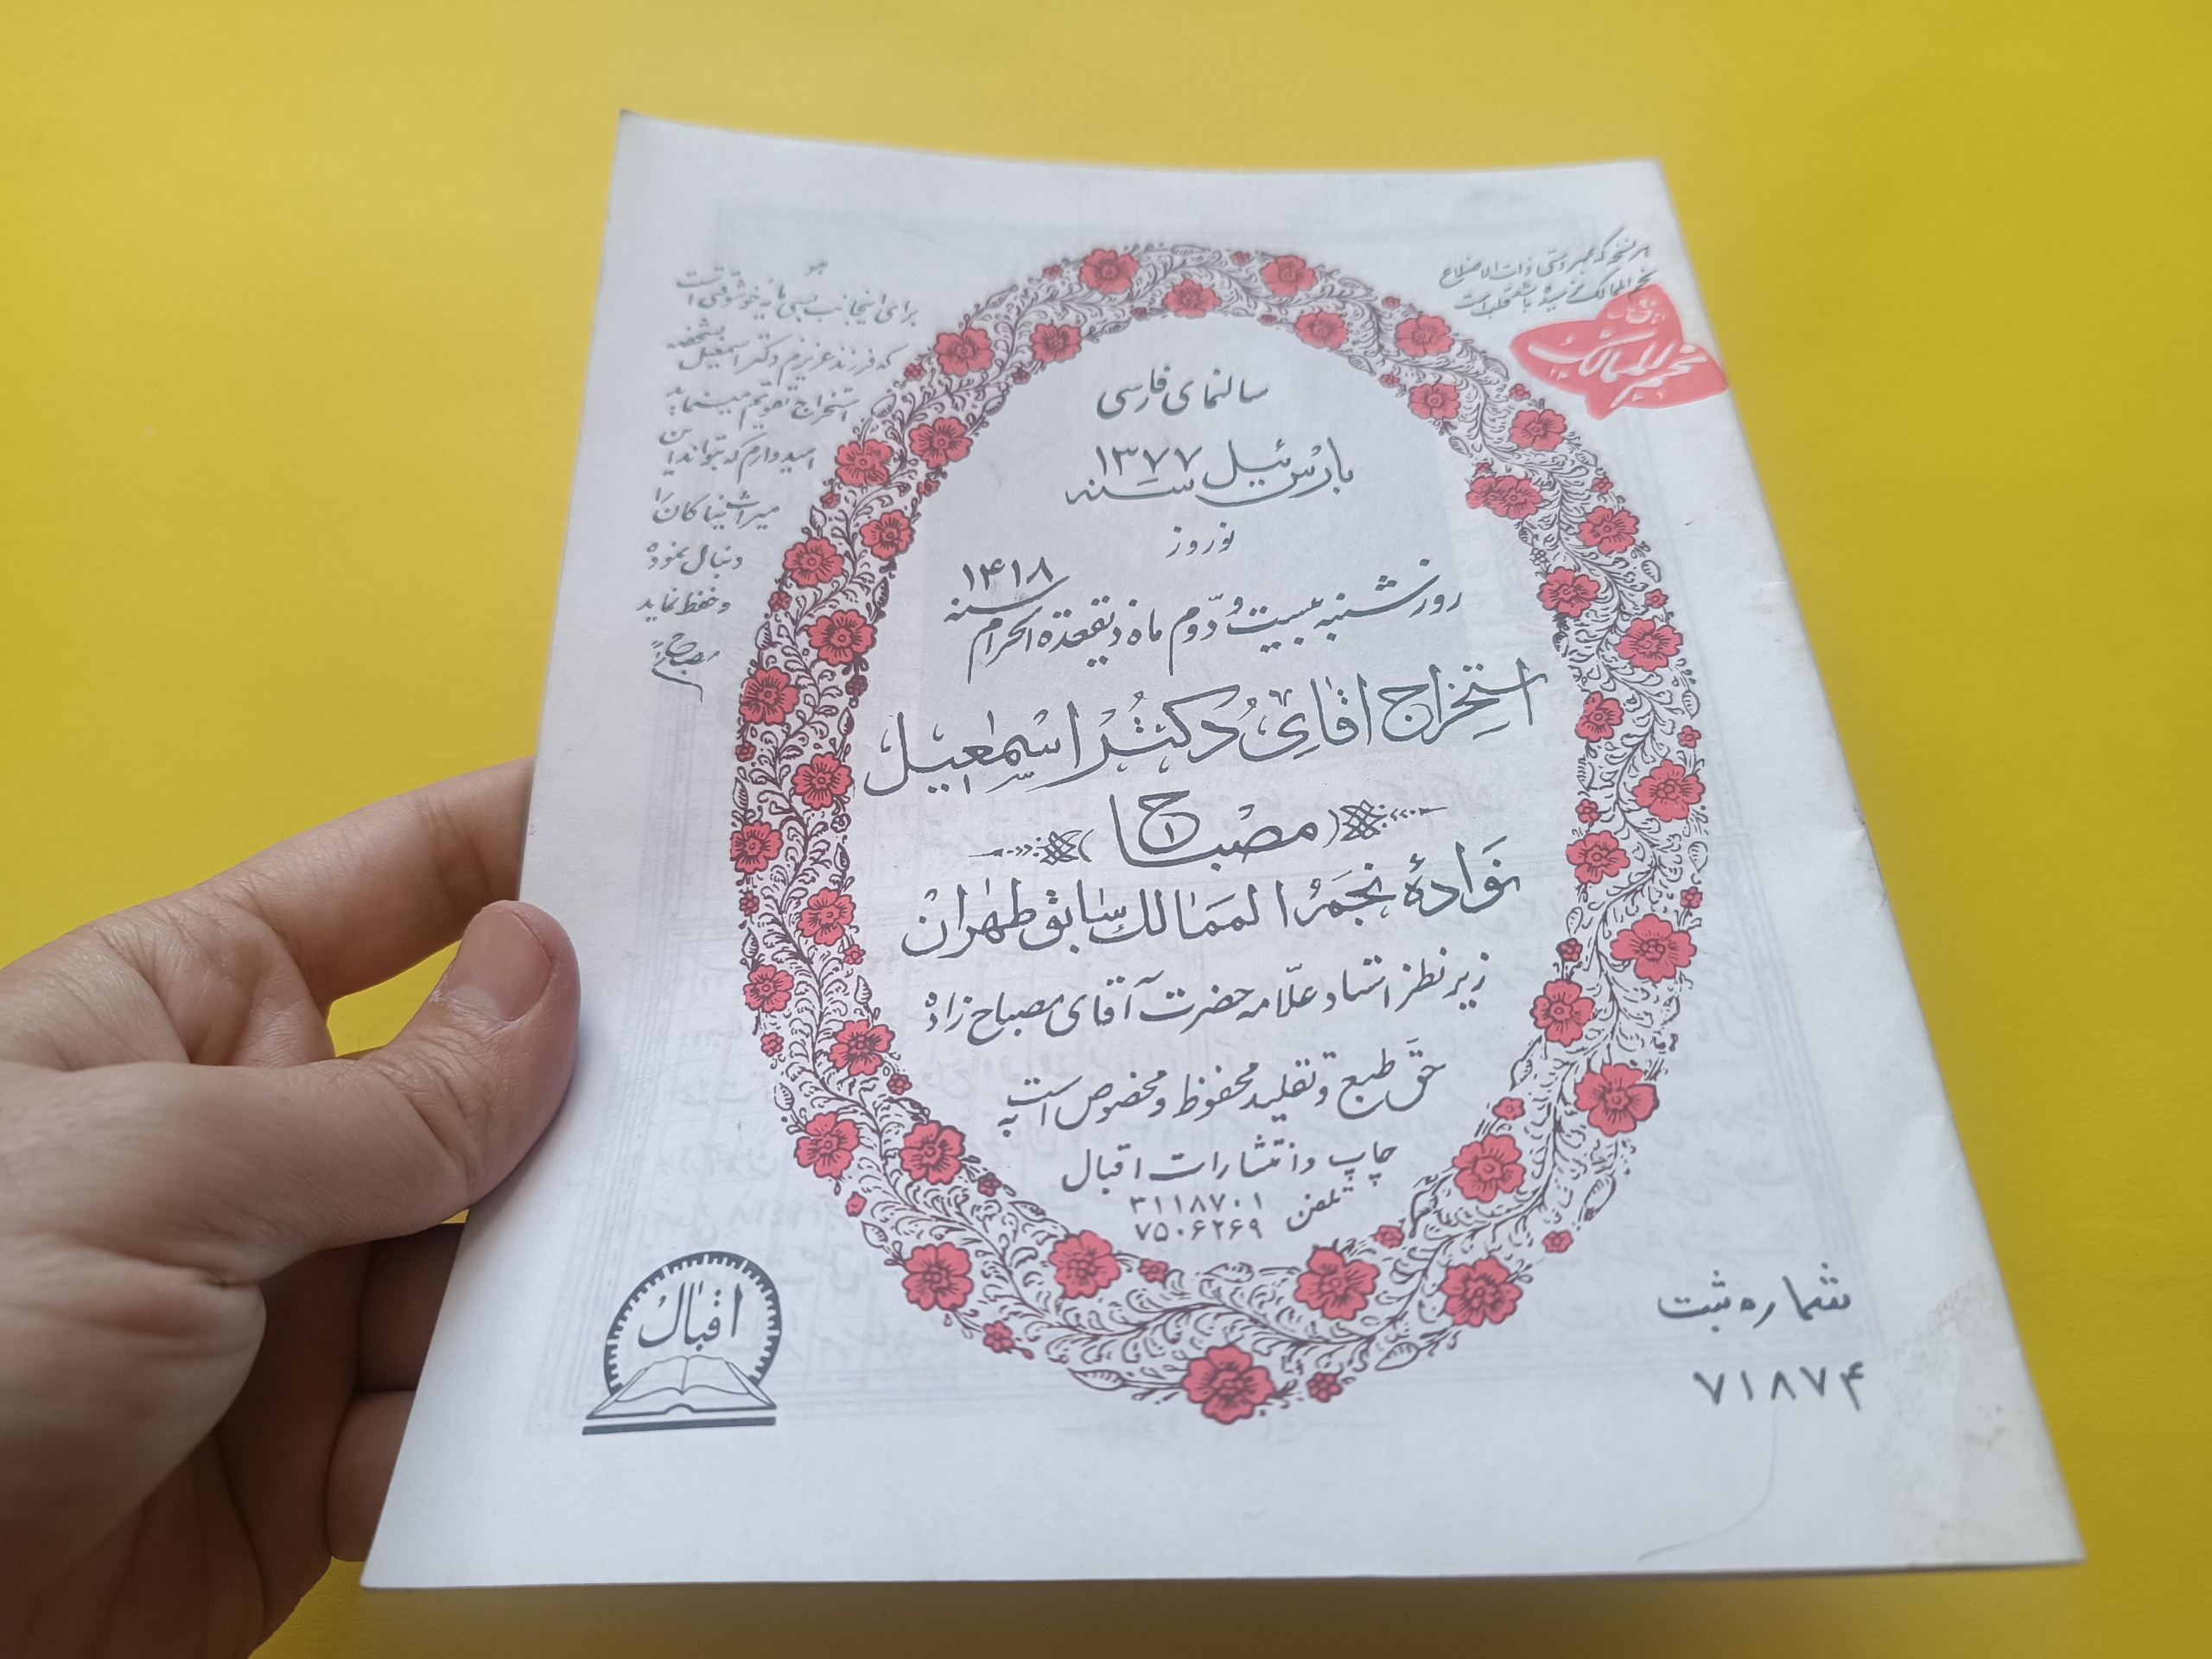 هر نسخه که بمهر دستی ذات الاضلاع
نجم الممالک نرسیده باشد تقلبی است
نجم الممالک
هو
برای اینجانب بسی مایه خوشوقتی است
که فرزند عزیزم دکتر اسمعیل بشخصه
استخراج تقویم مینماید
امیدوارم که بتواند این
میراث نیاکان را
دنبال نموده
و حفظ نماید
مصباح
سالنمای فارسی
بارس ئیل سنه ۱۳۷۷
نوروز
روز شنبه بیست و دوم ماه ذیقعدة الحرام سنه ۱۴۱۸
استخراج اقای دکتر اسمعیل
(مصباح)
نوادهٔ نجم الممالک سابق طهران
زیر نظر استاد علّامه حضرت آقای مصباح زاده
حقّ طبع و تقلید محفوظ و مخصوص است به
چاپ و انتشارات اقبال
تلفن ۳۱۱۸۷۰۱
۷۵۰۶۲۶۹
اقبال
شماره ثبت
۷۱۸۷۴